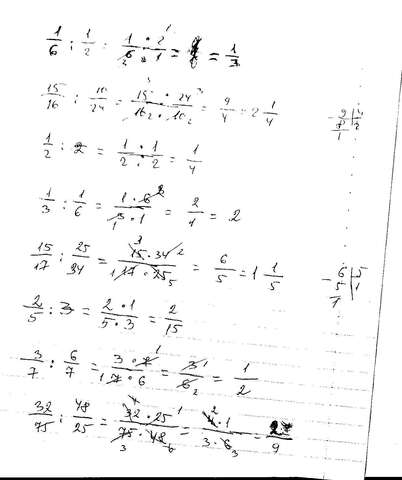 1/6 : 1/2 = 1·2/6·1 = 1/3
15/16 : 10/24 = 15·24/16·10 = 9/4 = 2 1/4
1/2 : 2 = 1·1/2·2 = 1/4
1/3 : 1/6 = 1·6/3·1 = 2/1 = 2
15/17 : 25/34 = 15·34/17·25 = 6/5 = 1 1/5
2/5 : 3 = 2·1/5·3 = 2/15
3/7 : 6/7 = 3·7/7·6 = 3/6 = 1/2
32/75 : 48/25 = 32·25/75·48 = 4·1/3·6 = 2/9